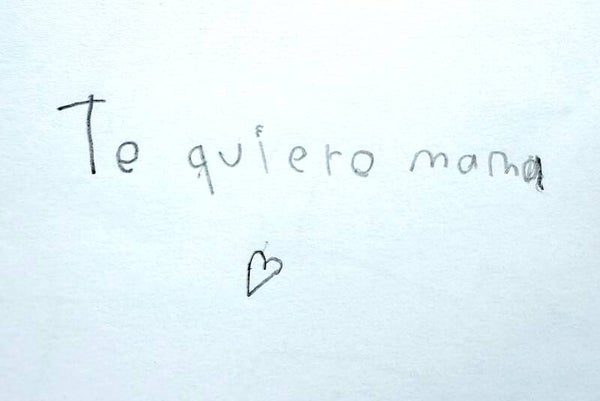 Te quiero mama